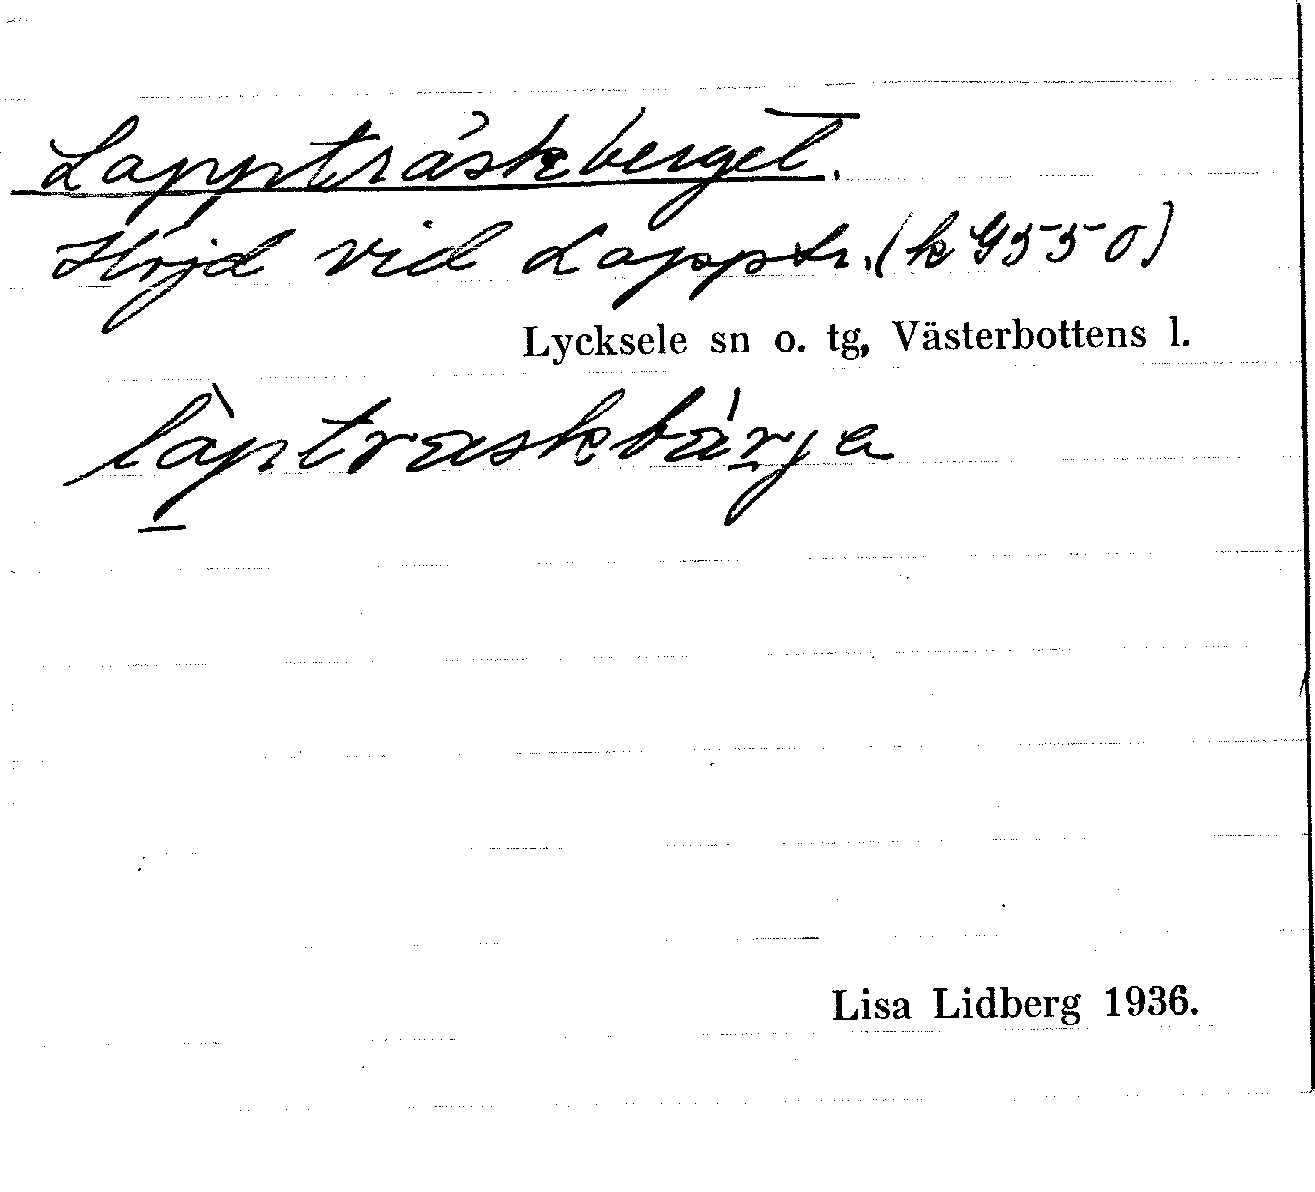 Lappträskberget.
Höjd vid Lapptr. (k 9550)
Lycksele sn o. tg, Västerbottens l.
làptraskbá̈rja
Lisa Lidberg 1936.